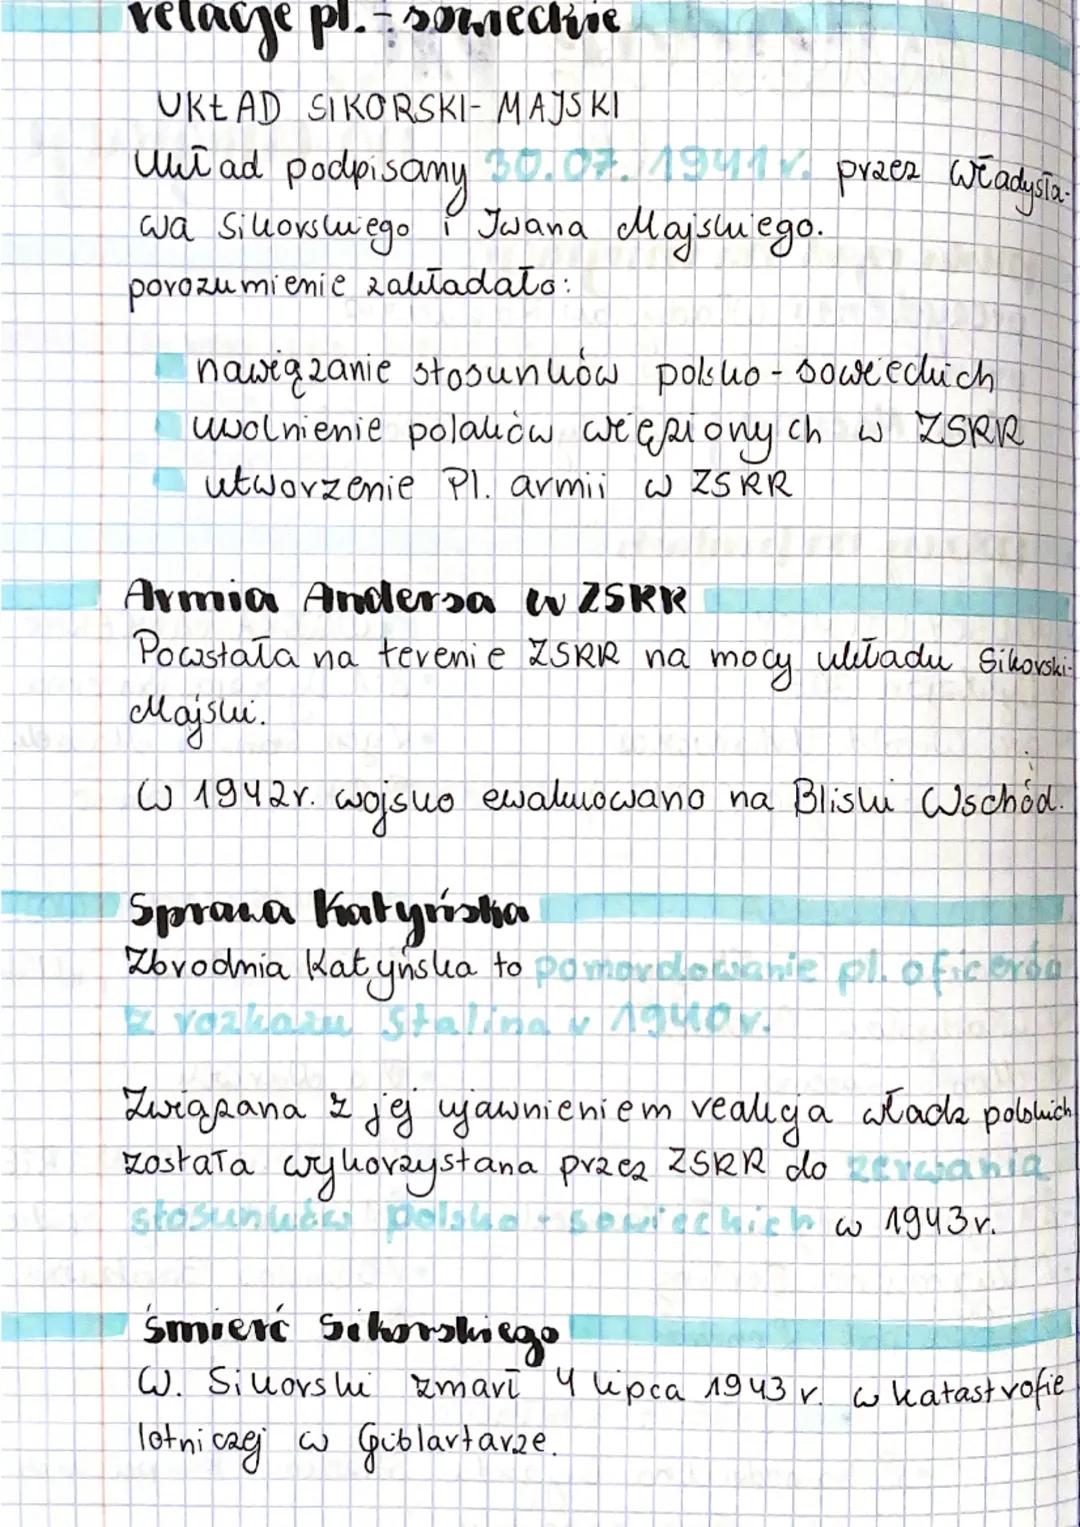 relacje pl. - sowieckie
UKŁAD SIKORSKI- MAJSKI
Układ podpisany 30.07.1941r. przez Władysła-
wa Sikorskiego i Iwana Majskiego.
porozumienie zakładało:
nawiązanie stosunków polsko - sowieckich
uwolnienie polaków więzionych w ZSRR
utworzenie Pl. armii w ZSRR
Armia Andersa w ZSRR
Powstała na terenie ZSRR na mocy układu Sikorski-
Majski.
W 1942r. wojsko ewakuowano na Bliski Wschód.
Sprawa Katyńska
Zbrodnia Katyńska to pomordowanie pl. oficerów
z rozkazu Stalina v 1940r.
Związana z jej ujawnieniem reakcja władz polskich
została wykorzystana przez ZSRR do zerwania
stosunków polsko - sowieckich w 1943r.
śmierć Sikorskiego
W. Sikorski zmarł 4 lipca 1943 r. w katastrofie
lotniczej w Giblartarze.